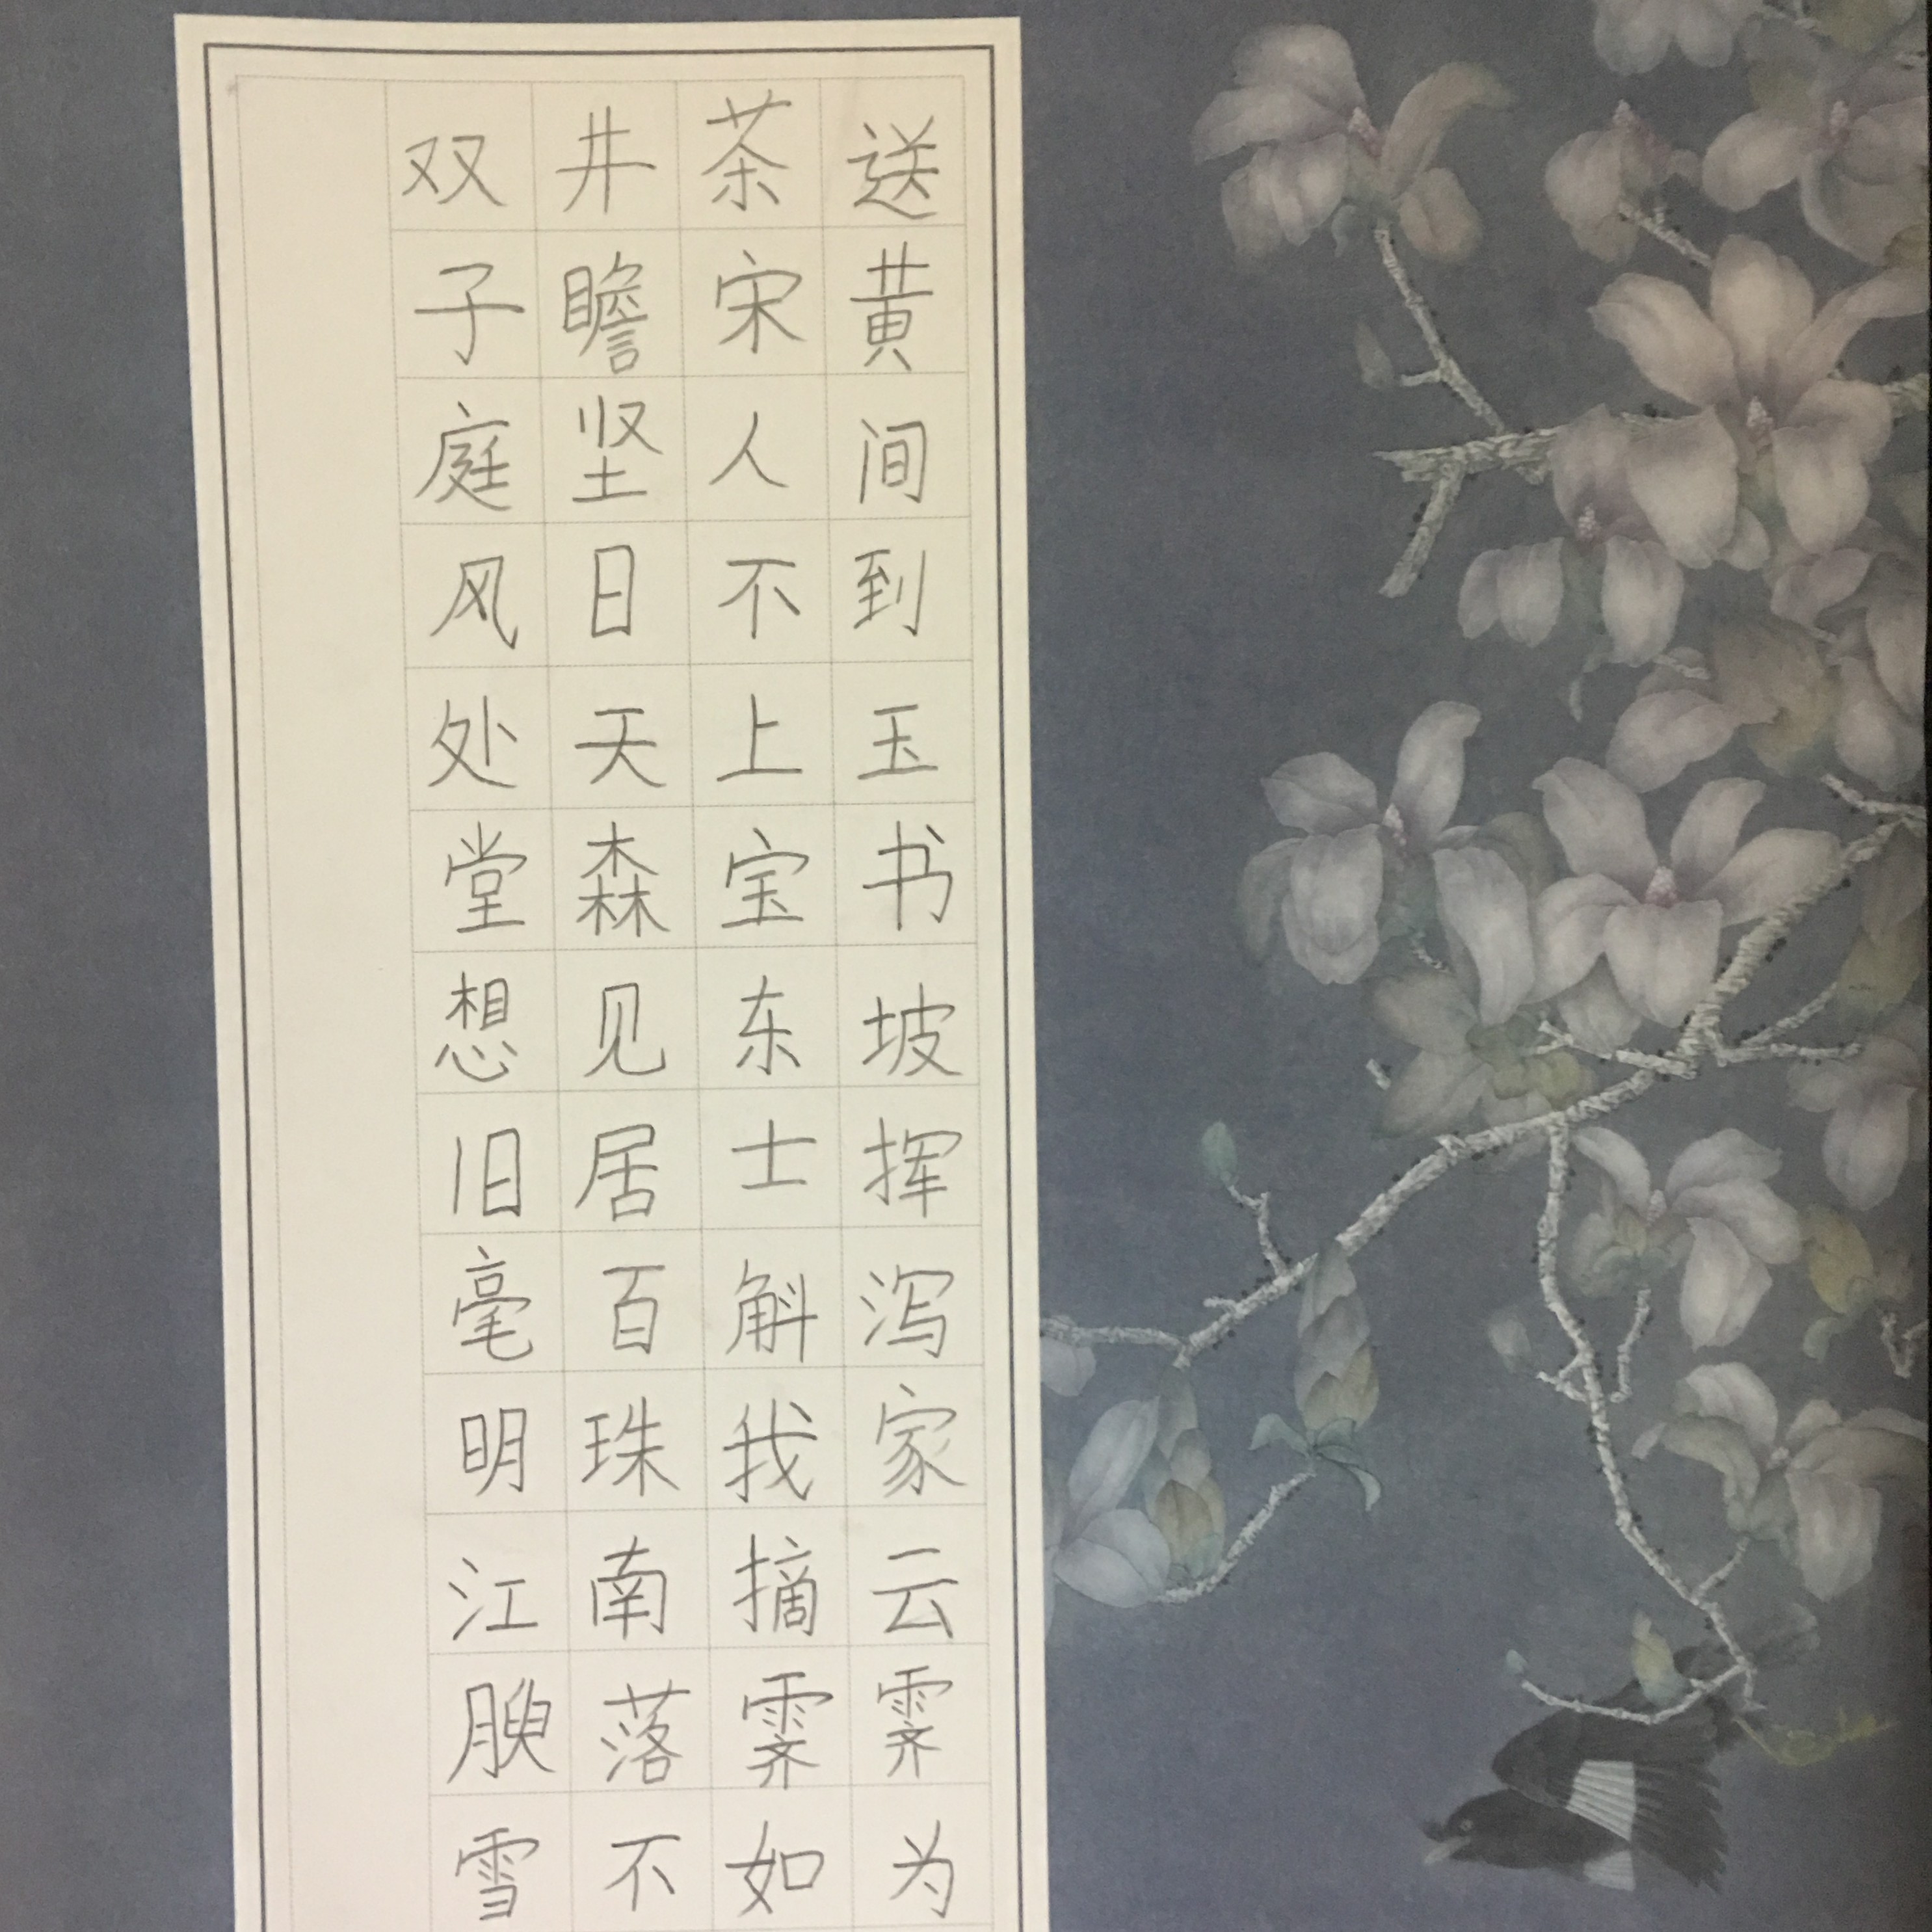 双井茶送
子瞻宋黄
庭坚人间
风日不到
处天上玉
堂森宝书
想见东坡
旧居士挥
毫百斛泻
明珠我家
江南摘云
腴落霁霁
雪不如为